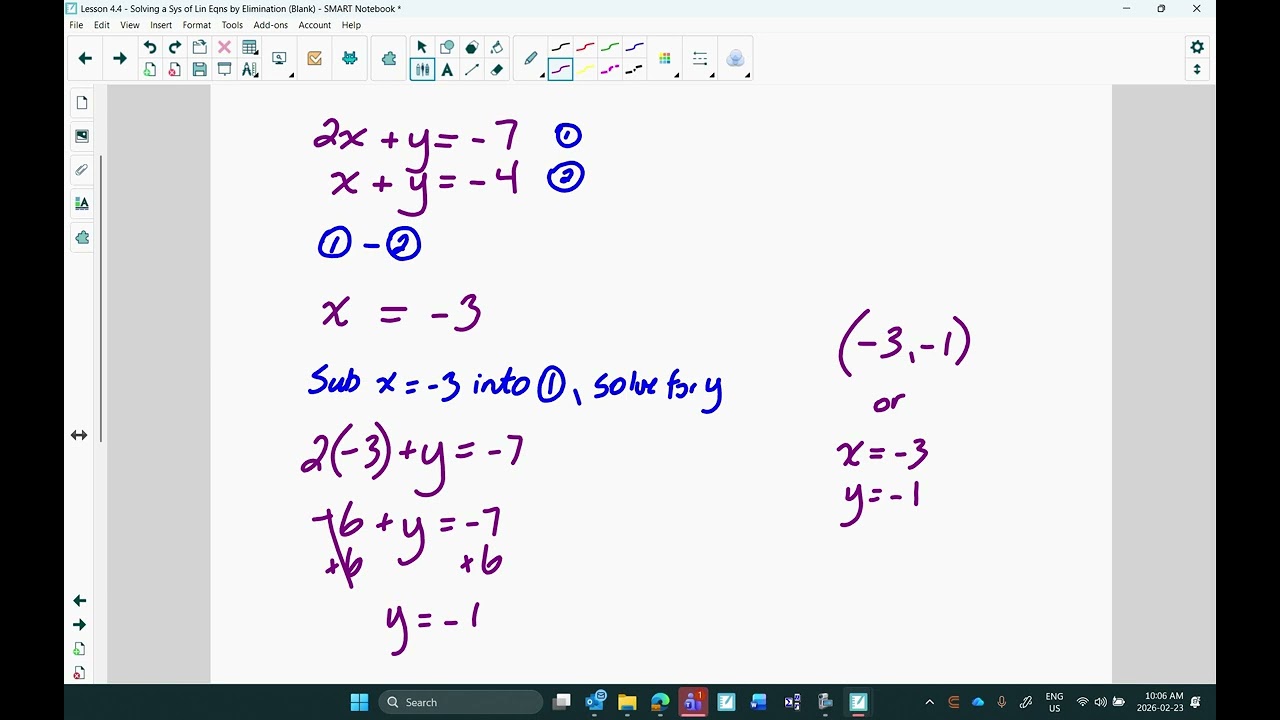 Lesson 4.4 - Solving a Sys of Lin Eqns by Elimination (Blank) - SMART Notebook *
File Edit View Insert Format Tools Add-ons Account Help
2x + y = -7 ①
x + y = -4 ②
① - ②
x = -3
Sub x = -3 into ①, solve for y
2(-3) + y = -7
-6 + y = -7
+6 +6
y = -1
(-3, -1)
or
x = -3
y = -1
Search
1
ENG
US
10:06 AM
2026-02-23